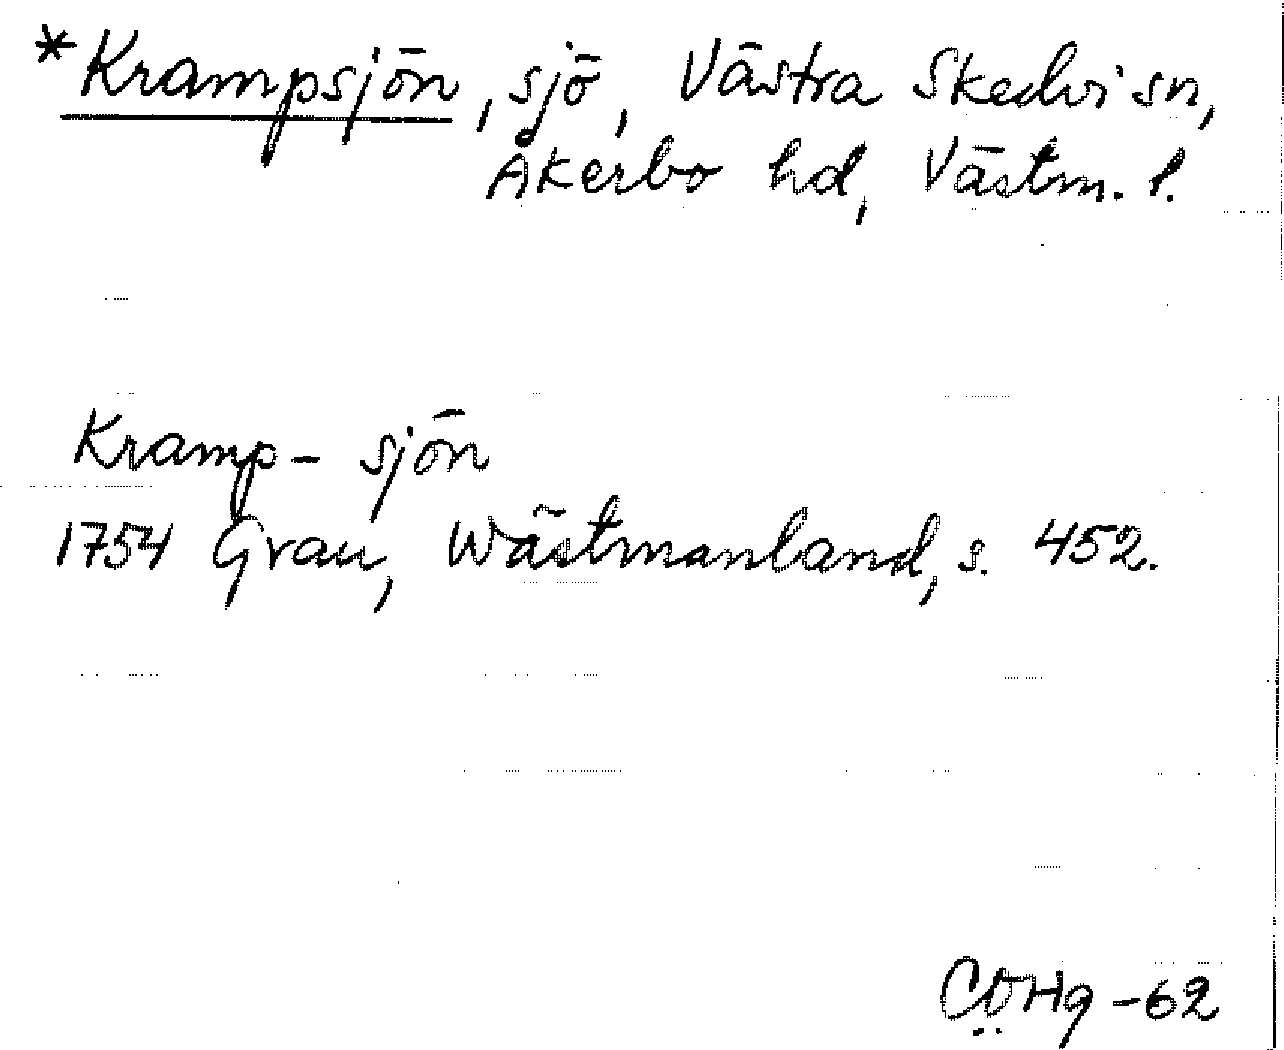 *Krampsjön, sjö, Västra Skedvi sn,
Åkerbo hd, Västm. l.
Kramp- sjön
1754 Grau, Wästmanland, s. 452.
CÖHg -62